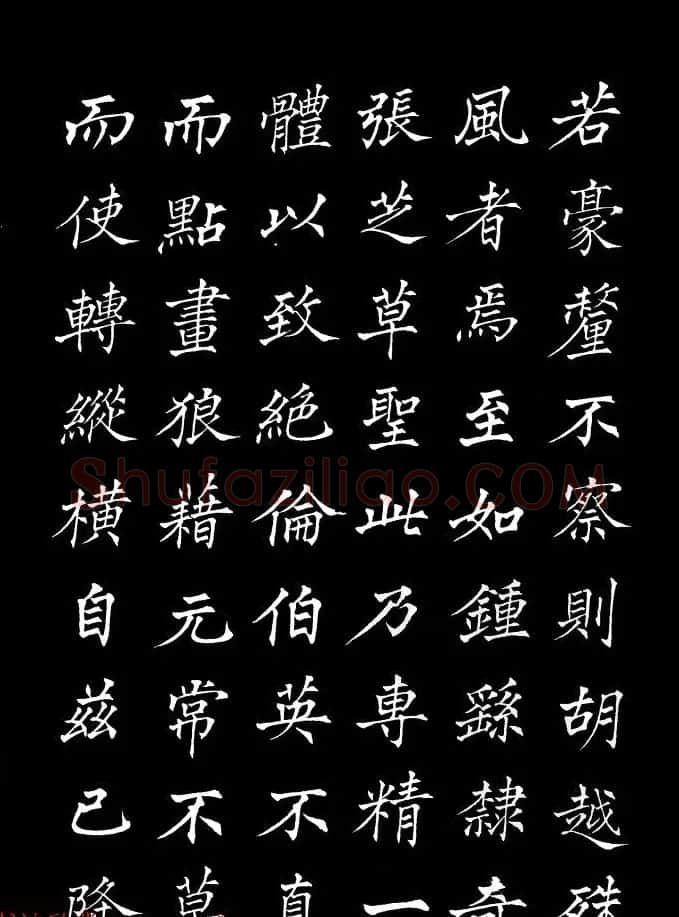 若豪釐不察則胡越殊
風者焉至如鍾繇隸奇
張芝草聖此乃專精一
體以致絶倫伯英不真
而點畫狼藉元常不草
而使轉縱橫自茲已降
Shufaziliao.COM